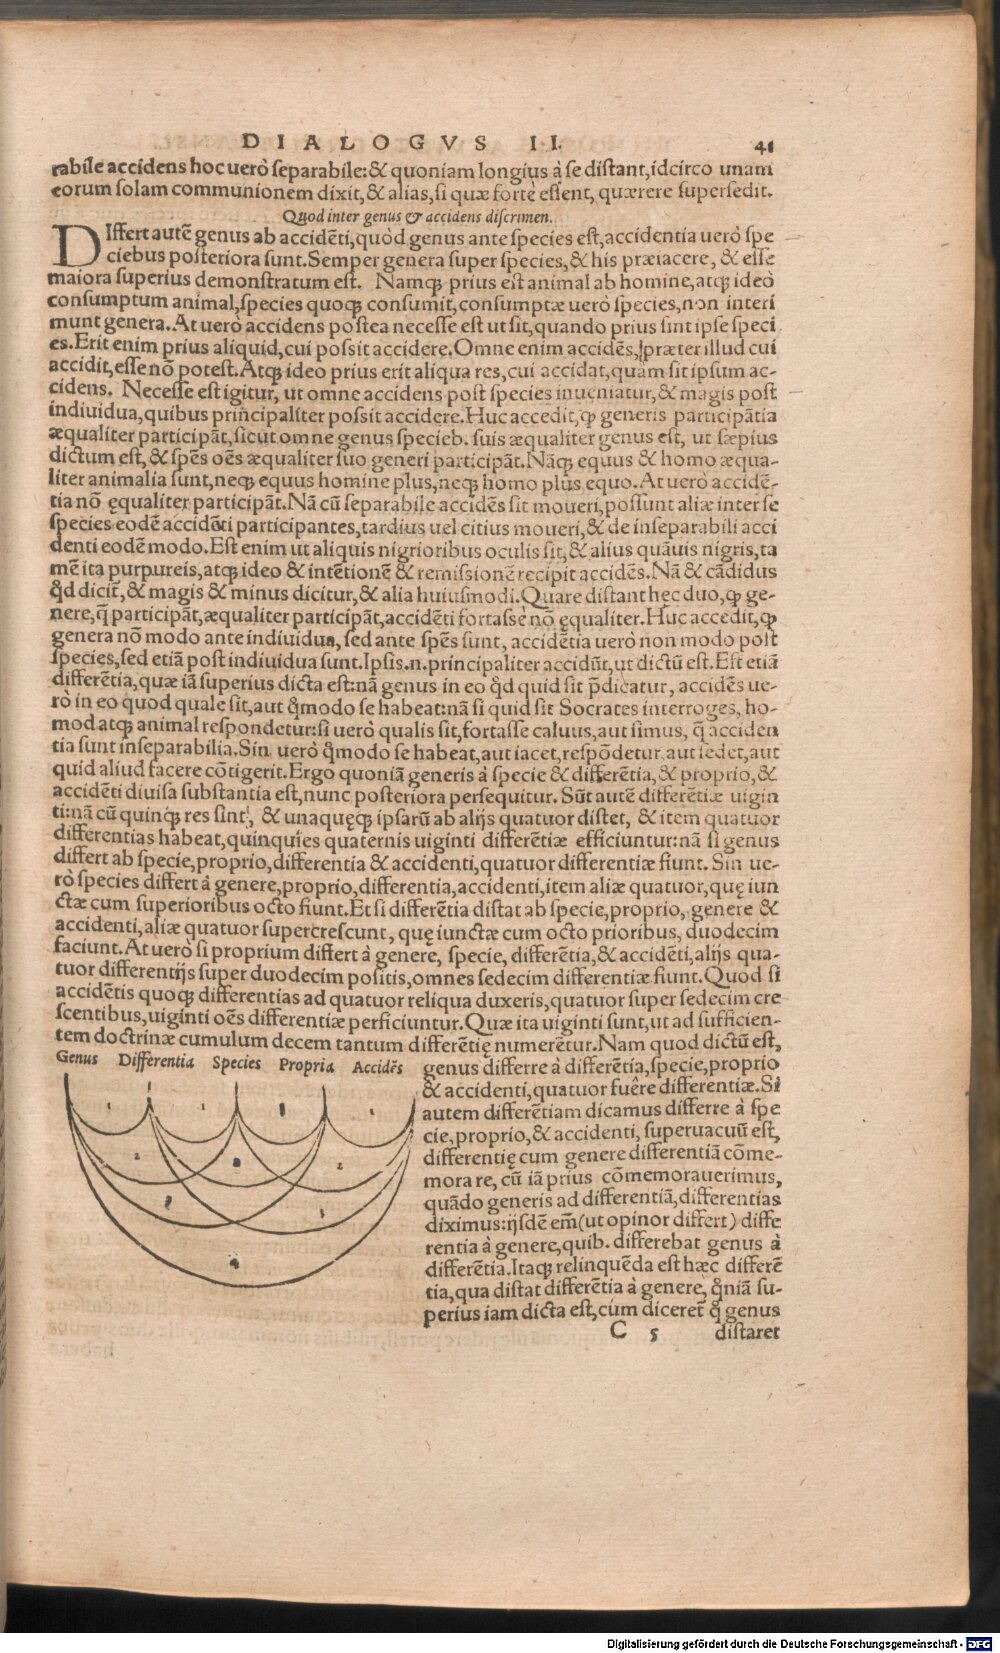 DIALOGVS II. 41
rabile accidens hoc uerò separabile: & quoniam longius à se distant, idcirco unam
eorum solam communionem dixit, & alias, si quæ fortè essent, quærere supersedit.
Quod inter genus & accidens discrimen.
DIffert autē genus ab accidēti, quòd genus ante species est, accidentia uerò spe
ciebus posteriora sunt. Semper genera super species, & his præiacere, & esse
maiora superius demonstratum est. Namq; prius est animal ab homine, atq; ideò
consumptum animal, species quoq; consumit, consumptæ uerò species, non interi
munt genera. At uerò accidens postea necesse est ut sit, quando prius sint ipse speci
es. Erit enim prius aliquid, cui possit accidere. Omne enim accidēs, præter illud cui
accidit, esse nō potest. Atq; ideo prius erit aliqua res, cui accidat, quàm sit ipsum ac-
cidens. Necesse est igitur, ut omne accidens post species inueniatur, & magis post
indiuidua, quibus principaliter possit accidere. Huc accedit, ꝙ generis participātia
æqualiter participāt, sicut omne genus specieb. suis æqualiter genus est, ut sæpius
dictum est, & spēs oēs æqualiter suo generi participāt. Nāq; equus & homo æqua-
liter animalia sunt, neq; equus homine plus, neq; homo plus equo. At uerò accidē-
tia nō ęqualiter participāt. Nā cū separabile accidēs sit moueri, possunt aliæ inter se
species eodē accidēti participantes, tardius uel citius moueri, & de inseparabili acci
denti eodē modo. Est enim ut aliquis nigrioribus oculis sit, & alius quāuis nigris, ta
mē ita purpureis, atq; ideo & intētionē & remissionē recipit accidēs. Nā & cādidus
qd̄ dicit̄, & magis & minus dicitur, & alia huiusmodi. Quare distant hęc duo, ꝙ ge-
nere, q̄ participāt, æqualiter participāt, accidēti fortassè nō ęqualiter. Huc accedit, ꝙ
genera nō modo ante indiuidua, sed ante spēs sunt, accidētia uerò non modo post
species, sed etiā post indiuidua sunt. Ipsis .n. principaliter accidūt, ut dictū est. Est etiā
differētia, quæ iā superius dicta est: nā genus in eo qd̄ quid sit p̄dicatur, accidēs ue-
rò in eo quod quale sit, aut qmodo se habeat: nā si quid sit Socrates interroges, ho-
mo d atq; animal respondetur: si uerò qualis sit, fortasse caluus, aut simus, q̄ acciden
tia sunt inseparabilia. Sin uerò qmodo se habeat, aut iacet, respōdetur, aut sedet, aut
quid aliud facere cōtigerit. Ergo quoniā generis à specie & differētia, & proprio, &
accidēti diuisa substantia est, nunc posteriora persequitur. Sūt autē differētiæ uigin
ti: nā cū quinq; res sint, & unaquęq; ipsarū ab alijs quatuor distet, & item quatuor
differentias habeat, quinquies quaternis uiginti differētiæ efficiuntur: nā si genus
differt ab specie, proprio, differentia & accidenti, quatuor differentiæ fiunt. Sin ue-
rò species differt à genere, proprio, differentia, accidenti, item aliæ quatuor, quę iun
ctæ cum superioribus octo fiunt. Et si differētia distat ab specie, proprio, genere &
accidenti, aliæ quatuor supercrescunt, quę iunctæ cum octo prioribus, duodecim
faciunt. At uerò si proprium differt à genere, specie, differētia, & accidēti, alijs qua-
tuor differentijs super duodecim positis, omnes sedecim differentiæ fiunt. Quod si
accidētis quoq; differentias ad quatuor reliqua duxeris, quatuor super sedecim cre
scentibus, uiginti oēs differentiæ perficiuntur. Quæ ita uiginti sunt, ut ad sufficien-
tem doctrinæ cumulum decem tantum differētię numerētur. Nam quod dictū est,
Genus Differentia Species Propria Accidēs
1 1 1 1
2 2 2
3 3
4
genus differre à differētia, specie, proprio
& accidenti, quatuor fuêre differentiæ. Si
autem differētiam dicamus differre à spe
cie, proprio, & accidenti, superuacuū est,
differentię cum genere differentiā cōme-
morare, cū iā prius cōmemorauerimus,
quādo generis ad differentiā, differentias
diximus: ijsdē em̄ (ut opinor differt) diffe
rentia à genere, quib. differebat genus à
differētia. Itaq; relinquēda est hæc differē
tia, qua distat differētia à genere, qn̄iā su-
perius iam dicta est, cum diceret̄ q̄ genus
C 5 distaret
Digitalisierung gefördert durch die Deutsche Forschungsgemeinschaft - DFG